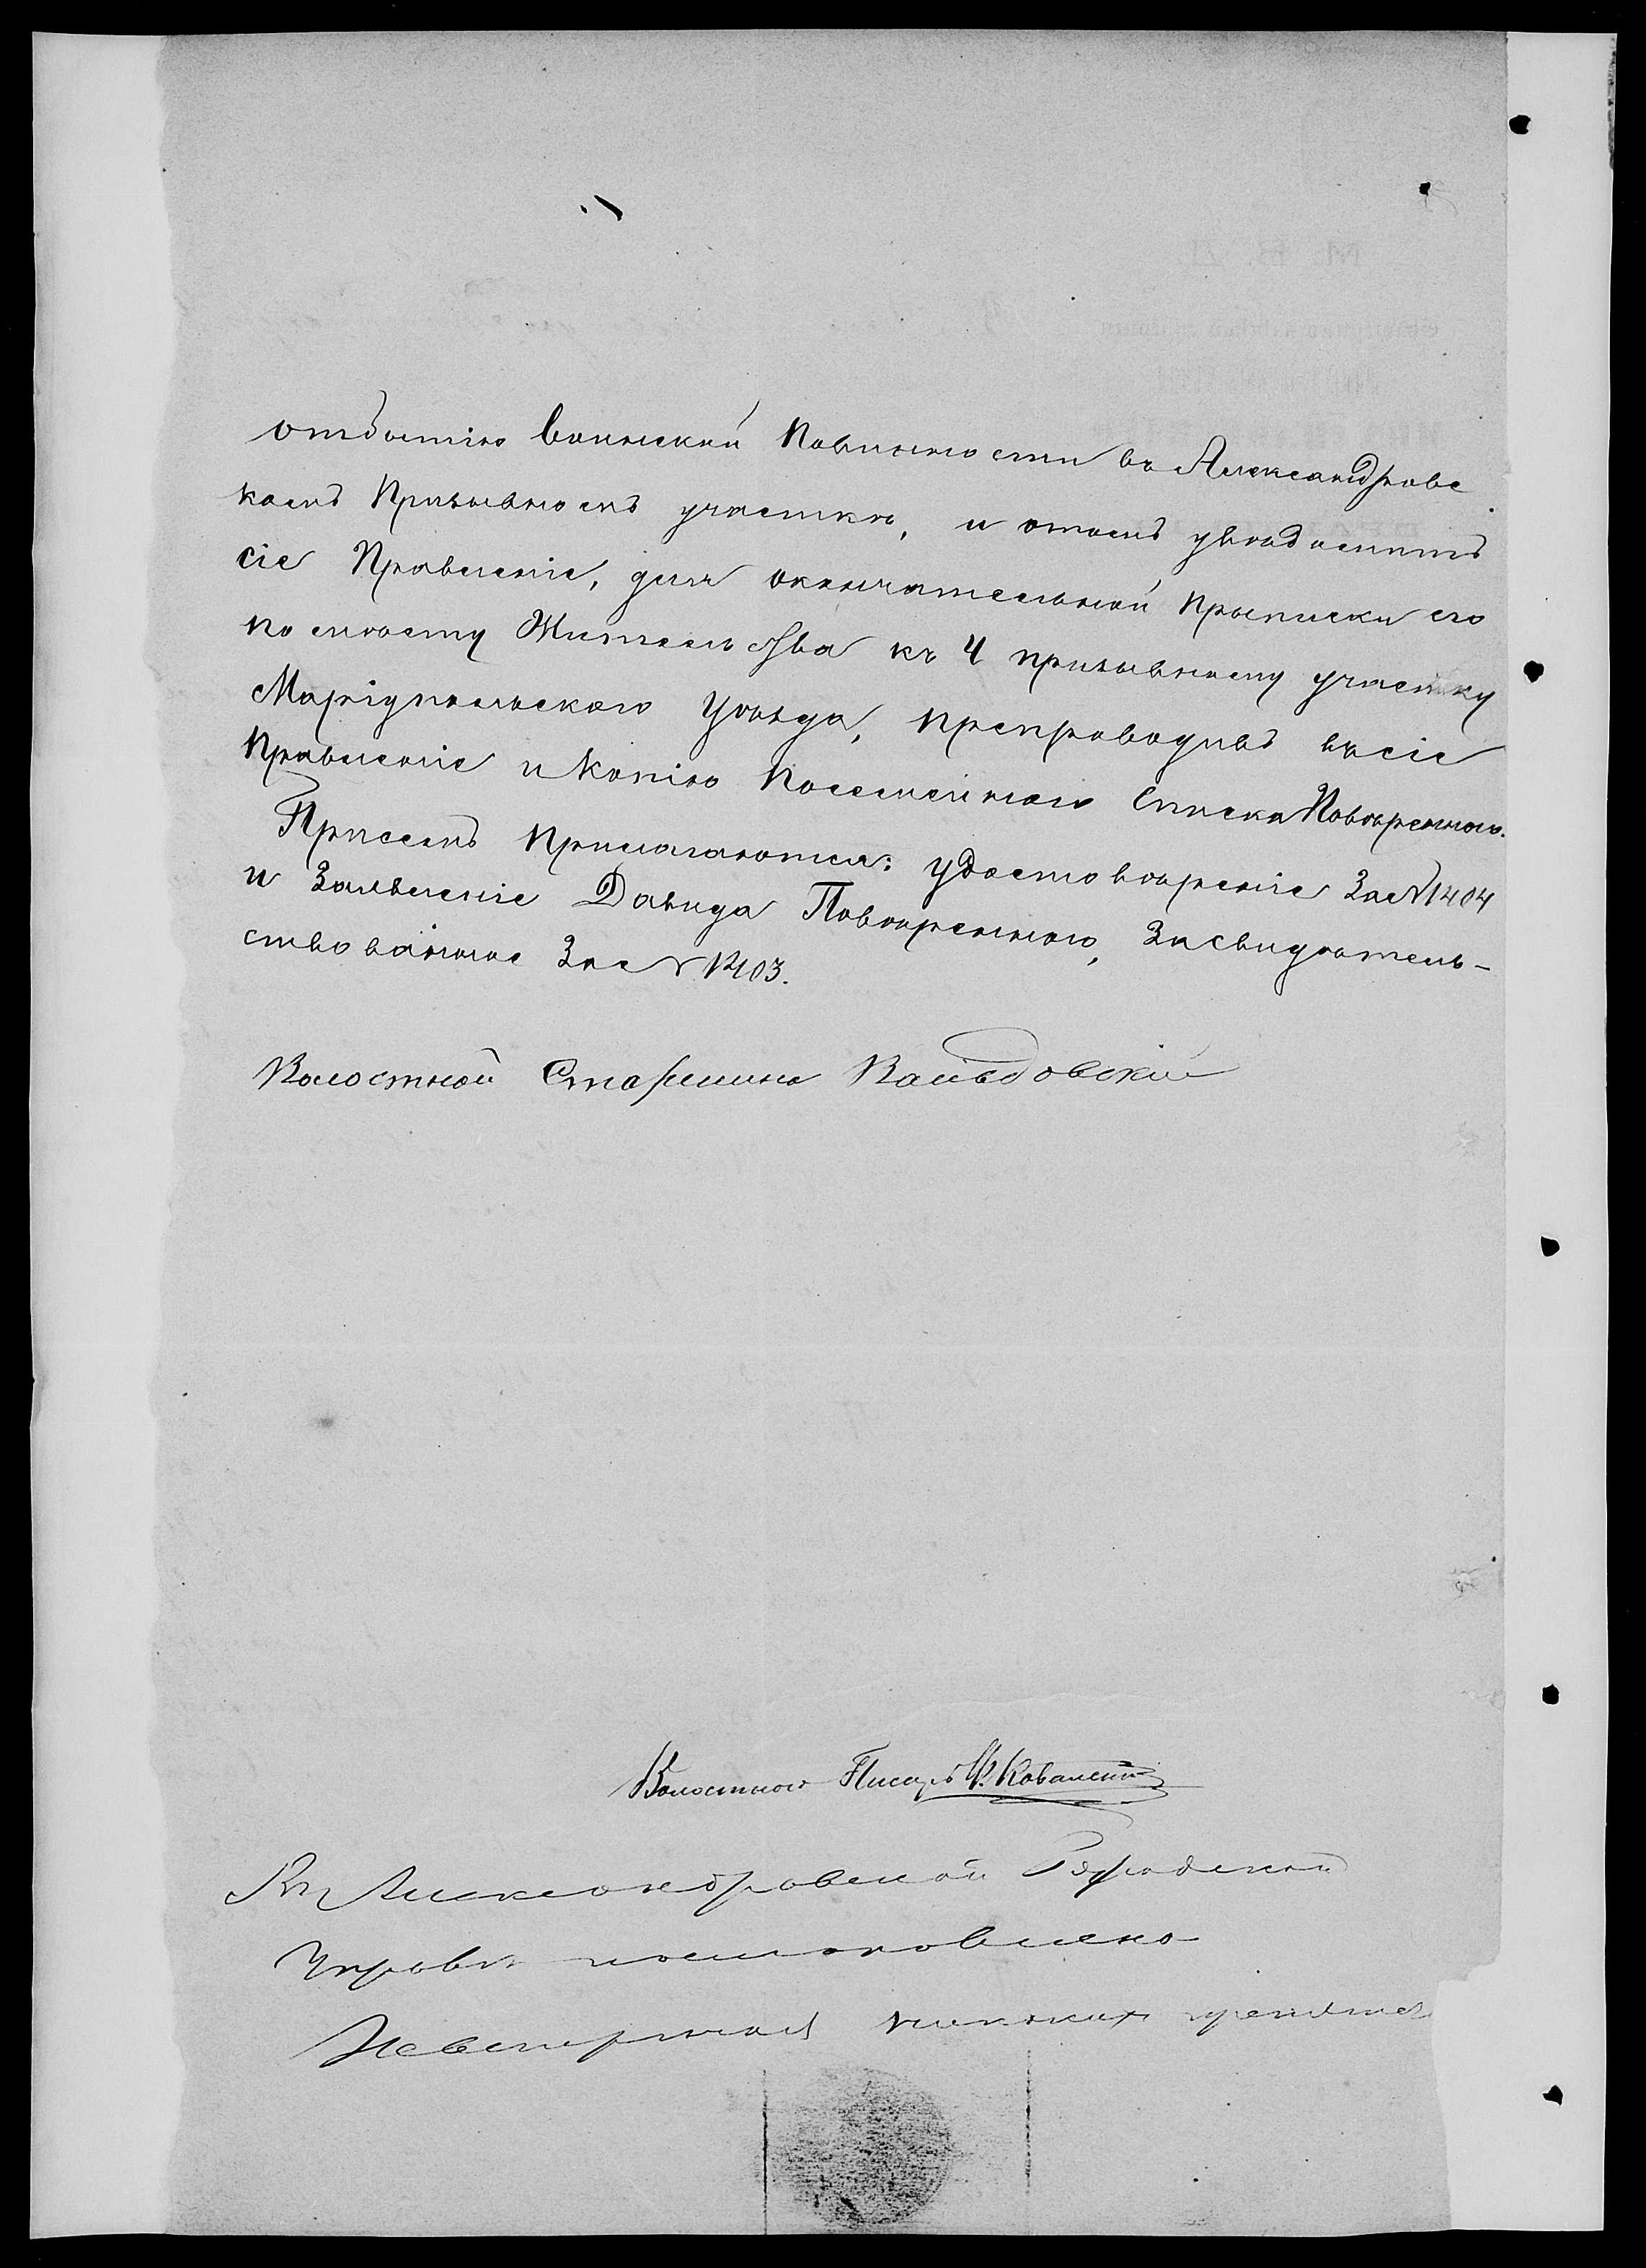 отбытію Воинской Повинности въ Александровс
комъ Призывномъ участкѣ, и отомъ увѣдомитъ
сіе Правленіе, для окончательной Прыписки его
по мѣсту Жительства къ 4 призывному участку
Маріупольскаго Уѣзда, препроводивъ въсіе
Правленіе и Копію Посемейнаго Списка Повѣреннаго.
Присемъ Прилагаются: удостовѣреніе За № 1404
и Заявленіе Давида Повѣреннаго, Засвидѣтель-
ствованное За № 1403.
Волостной Старшина
Волостной Писарь Ф. Коваленко
Въ Александровской Городской
Управѣ
никакихъ